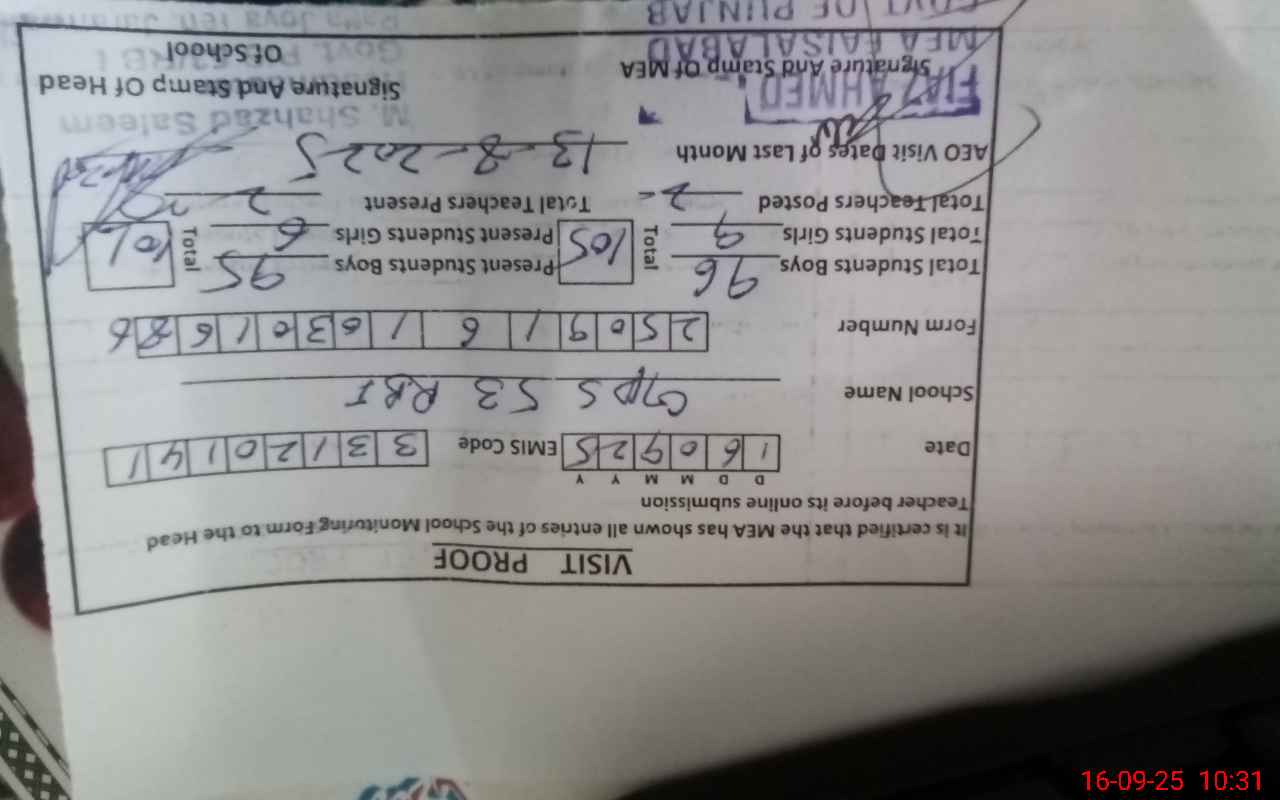 VISIT PROOF
It is certified that the MEA has shown all entries of the School Monitoring Form to the Head
Teacher before its online submission
D D M M Y Y
Date 1 6 0 9 2 5 EMIS Code 3 3 1 2 0 1 4 1
School Name GPS 53 RB I
Form Number
Total Students Boys 96 Total 105 Present Students Boys 95 Total 101
Total Students Girls 9 Present Students Girls 6
Total Teachers Posted 2 Total Teachers Present 2
AEO Visit Dates of Last Month 13-8-2025
FIAZ AHMED M. Shahzad Saleem
Signature And Stamp Of MEA Signature And Stamp Of Head
MEA FAISALABAD Of School
GOVT OF PUNJAB Govt.
16-09-25 10:31